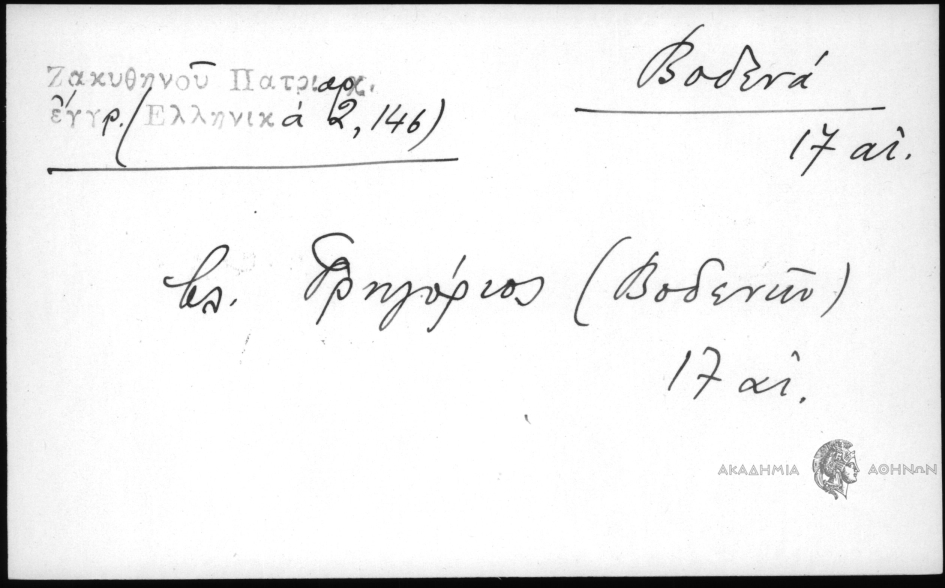 Ζακυθηνοῦ Πατριαρχ.
ἔγγρ. (Ἑλληνικά 2, 146)
Βοδενά
17 αἰ.
βλ. Γρηγόριος (Βοδενῶν)
17 αἰ.
ΑΚΑΔΗΜΙΑ ΑΘΗΝΩΝ